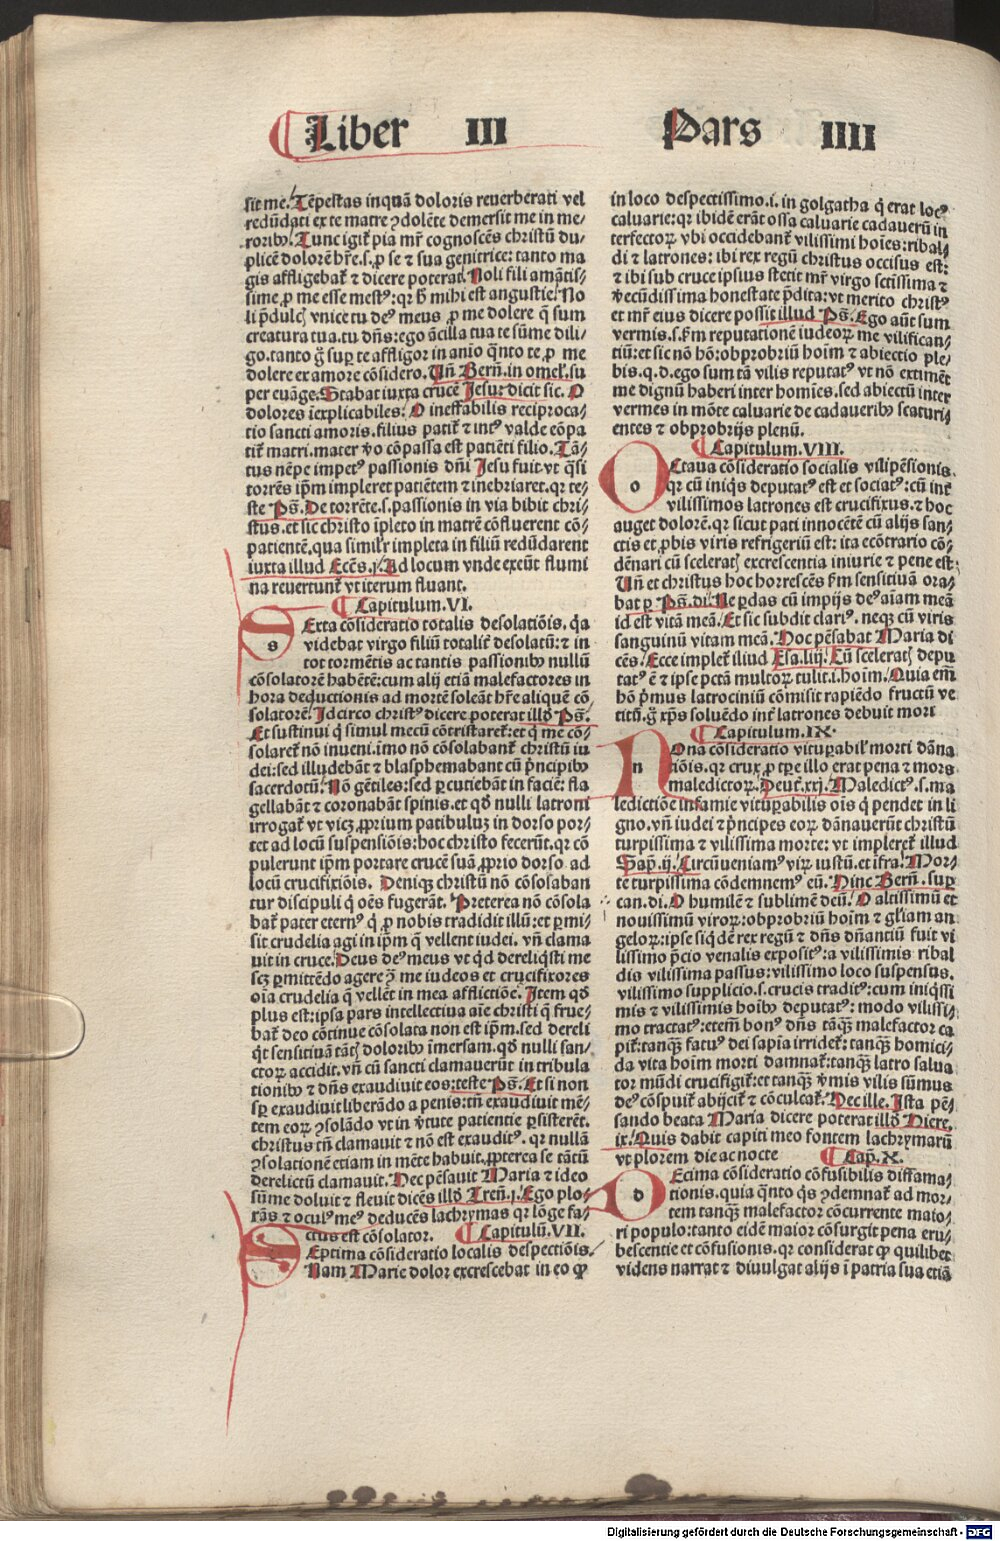 Liber III Pars IIII
sit me. Tēpestas inquā doloris reuerberati vel
redūdati ex te matre ꝯdolēte demersit me in me-
roribꝰ. Tunc igit̃ pia mr̃ cognoscēs christū du-
plicē dolorē hr̄e.s.ꝓ se ⁊ sua genitrice: tanto ma
gis affligebat̃ ⁊ dicere poterat. Noli fili amātis-
sime ꝓ me esse mestꝰ: qr h̄ mihi est angustie. No
li p̄dulcꝭ vnice tu deꝰ meus ꝓ me dolere q̄ sum
creatura tua. tu dn̄s: ego ācilla tua te sūme dili-
go. tanto g̃ suꝑ te affligor in aīo q̄nto te ꝓ me
dolere ex amore cōsidero. Vn̄ Bern̄. in omel̃. su
per euāge. Stabat iuxta crucē Jesus dicit sic. O
dolores īexplicabiles: O ineffabilis reciproca-
tio sancti amoris. filius patit̃ ⁊ intꝰ valde cōpa
tit̃ matri. mater v̄o cōpassa est patiēti filio. Tā-
tus nēpe impetꝰ passionis dn̄i Jesu fuit vt q̄si
torrēs ip̄m impleret patiētem ⁊ inebriaret. qr te-
ste Ps̄. De torrēte.s.passionis in via bibit chri-
stus. et sic christo īpleto in matrē cōfluerent cō-
patientē. qua simil̃r impleta in filiū redūdarent
iuxta illud Eccs̄.j. Ad locum vnde exeūt flumi
na reuertunt̃ vt iterum fluant.
Capitulum. VI.
s Exta cōsideratio totalis desolatiōis. q̄a
videbat virgo filiū totalit̃ desolatū: ⁊ in
tot tormētis ac tantis passionibꝰ nullū
cōsolatorē habētē: cum alij etiā malefactores in
hora deductionis ad mortē soleāt hr̄e aliquē cō
solatorē. Idcirco christꝰ dicere poterat illd̃ Ps̄.
Et sustinui q̄ simul mecū cōtristaret̃: et q̄ me cō-
solaret̃ nō inueni. īmo nō cōsolabant̃ christū iu
dei: sed illudebāt ⁊ blasphemabant cū p̄ncipibꝰ
sacerdotū. Nō gētiles: sed ꝑcutiebāt in faciē: fla
gellabāt ⁊ coronabāt spinis. et qd̃ nulli latroni
irrogat̃ vt vicꝫ ꝓprium patibuluꝫ in dorso por-
tet ad locū suspensiōis: hoc christo fecerūt. qr cō
pulerunt ip̄m portare crucē suā ꝓprio dorso ad
locū crucifixiōis. Deniqꝫ christū nō cōsolaban
tur discipuli q̄ oēs fugerāt. Preterea nō cōsola
bat̃ pater eternꝰ q̄ ꝓ nobis tradidit illū: et ꝑmi-
sit crudelia agi in ip̄m q̄ vellent iudei. vn̄ clama
uit in cruce. Deus deꝰ meus vt qd dereliq̄sti me
scꝫ ꝑmittēdo agere ꝯ̄ me iudeos et crucifixores
oīa crudelia q̄ vellēt in mea afflictiōe. Item qd̃
plus est: ipsa pars intellectiua aīe christi q̄ frue-
bat̃ deo cōtinue cōsolata non est ip̄m. sed dereli
q̄t sensitiuā tātꝭ doloribꝰ īmersam. qd̃ nulli san-
ctoꝝ accidit. vn̄ cū sancti clamauerūt in tribula
tionibꝰ ⁊ dn̄s exaudiuit eos: teste Ps̄. Et si non
sꝑ exaudiuit liberādo a penis: tn̄ exaudiuit mē-
tem eoꝝ ꝯsolādo vt in v̄tute patientie ꝑsisterēt.
christus tn̄ clamauit ⁊ nō est exauditꝰ. qr nullā
ꝯsolationē etiam in mēte habuit. ꝓpterea se tātū
derelictū clamauit. Hec pēsauit Maria ⁊ ideo
sūme doluit ⁊ fleuit dicēs illd̃ Tren̄.j. Ego plo-
rās ⁊ oculꝰ meꝰ deducēs lachrymas qr lōge fa-
ctus est cōsolator. Capitulū. VII.
Eptima cōsideratio localis despectiōis.
Nam Marie dolor excrescebat in eo ꝙ
in loco despectissimo.i. in golgatha q̄ erat locꝰ
caluarie: qr ibidē erāt ossa caluarie cadauerū in
terfectoꝝ vbi occidebant̃ vilissimi hoīes: ribal-
di ⁊ latrones: ibi rex regū christus occisus est:
⁊ ibi sub cruce ipsius stetit mr̃ virgo sctissima ⁊
v̄ecūdissima honestate p̄dita: vt merito christꝰ
et mr̃ eius dicere possit illud Ps̄. Ego aūt sum
vermis.s.ẜm reputationē iudeoꝝ me vilifican-
tiū: et sic nō hō: obprobriū hoīm ⁊ abiectio ple-
bis. q.d. ego sum tā vilis reputatꝰ vt nō extimēt
me dignū haberi inter homīes. sed abiectū inter
vermes in mōte caluarie de cadaueribꝰ scaturi-
entes ⁊ obprobrijs plenū.
Capitulum. VIII.
o Ctaua cōsideratio socialis vilipēsionis.
qr cū iniq̄s deputatꝰ est et sociatꝰ: cū int̃
vilissimos latrones est crucifixus. ⁊ hoc
auget dolorē. qr sicut pati innocētē cū alijs san-
ctis et ꝓbis viris refrigeriū est: ita ecōtrario cō-
dēnari cū sceleratꝭ excrescentia iniurie ⁊ pene est:
Vn̄ et christus hoc horrescēs ẜm sensitiuā ora-
bat ꝑ Ps̄. di. Ne perdas cū impijs deꝰ aīam meā
id est vitā meā. Et sic subdit clariꝰ. neqꝫ cū viris
sanguinū vitam meā. Hoc pēsabat Maria di
cēs. Ecce implet̃ illud Esa.liij. Cū sceleratꝭ depu
tatꝰ ē ⁊ ipse pctā multoꝝ tulit.i. hoīm. Quia em̄
hō p̄mus latrociniū cōmisit rapiēdo fructū ve
titū. g̃ xp̄s soluēdo int̃ latrones debuit mori
Capitulum. IX.
n Ona cōsideratio vituꝑabil̃ morti dāna
tiōis. qr crux ꝓ tꝑe illo erat pena ⁊ mors
maledictoꝝ. Deut̃.xxj. Maledictꝰ.s. ma
ledictiōe infamie vituꝑabilis oīs q̄ pendet in li
gno. vn̄ iudei ⁊ p̄ncipes eoꝝ dānauerūt christū
turpissima ⁊ vilissima morte: vt impleret̃ illud
Sap̄.ij. Circūueniamꝰ viꝝ iustū. et īfra. Mor-
te turpissima cōdemnemꝰ eū. Hinc Bern̄. suꝑ
can. di. O humilē ⁊ sublimē deū. O altissimū et
nouissimū viroꝝ: obprobriū hoīm ⁊ gl̃iam an
geloꝝ: ipse siq̄dē rex regū ⁊ dn̄s dn̄antiū fuit vi
lissimo p̄cio venalis expositꝰ: a vilissimis ribal
dis vilissima passus: vilissimo loco suspensus.
vilissimo supplicio.s. crucis traditꝰ: cum iniq̄ssi
mis ⁊ vilissimis hoībꝰ deputatꝰ: modo vilissi-
mo tractatꝰ: etem̄ bonꝰ dn̄s tāqꝫ malefactor ca
pit̃: tanqꝫ fatuꝰ dei sapīa irridet̃: tanqꝫ homici-
da vita hoīm morti damnat̃: tanqꝫ latro salua
tor mūdi crucifigit̃: et tanqꝫ v̄mis vilis sūmus
deꝰ cōspuit̃ abijcit̃ ⁊ cōculcat̃. Hec ille. Ista pē-
sando beata Maria dicere poterat illd̃ Hiere.
ix. Quis dabit capiti meo fontem lachrymarū
vt plorem die ac nocte Cap̄. X.
d Ecima cōsideratio cōfusibilis diffama-
tionis. quia q̄nto q̄s ꝯdemnat̃ ad mor-
tem tanqꝫ malefactor cōcurrente maio-
ri populo: tanto eidē maior cōsurgit pena eru-
bescentie et cōfusionis. qr considerat ꝙ quilibet
videns narrat ⁊ diuulgat alijs ī patria sua etiā
Digitalisierung gefördert durch die Deutsche Forschungsgemeinschaft - DFG